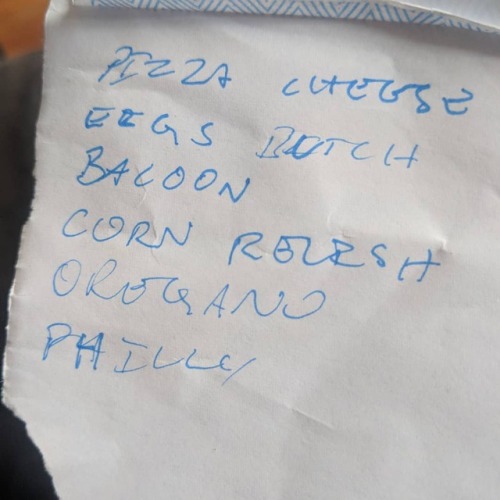 PIZZA CHEESE
EEGS BUTCH
BACOON
CORN RELESH
OREGANO
PHILLY